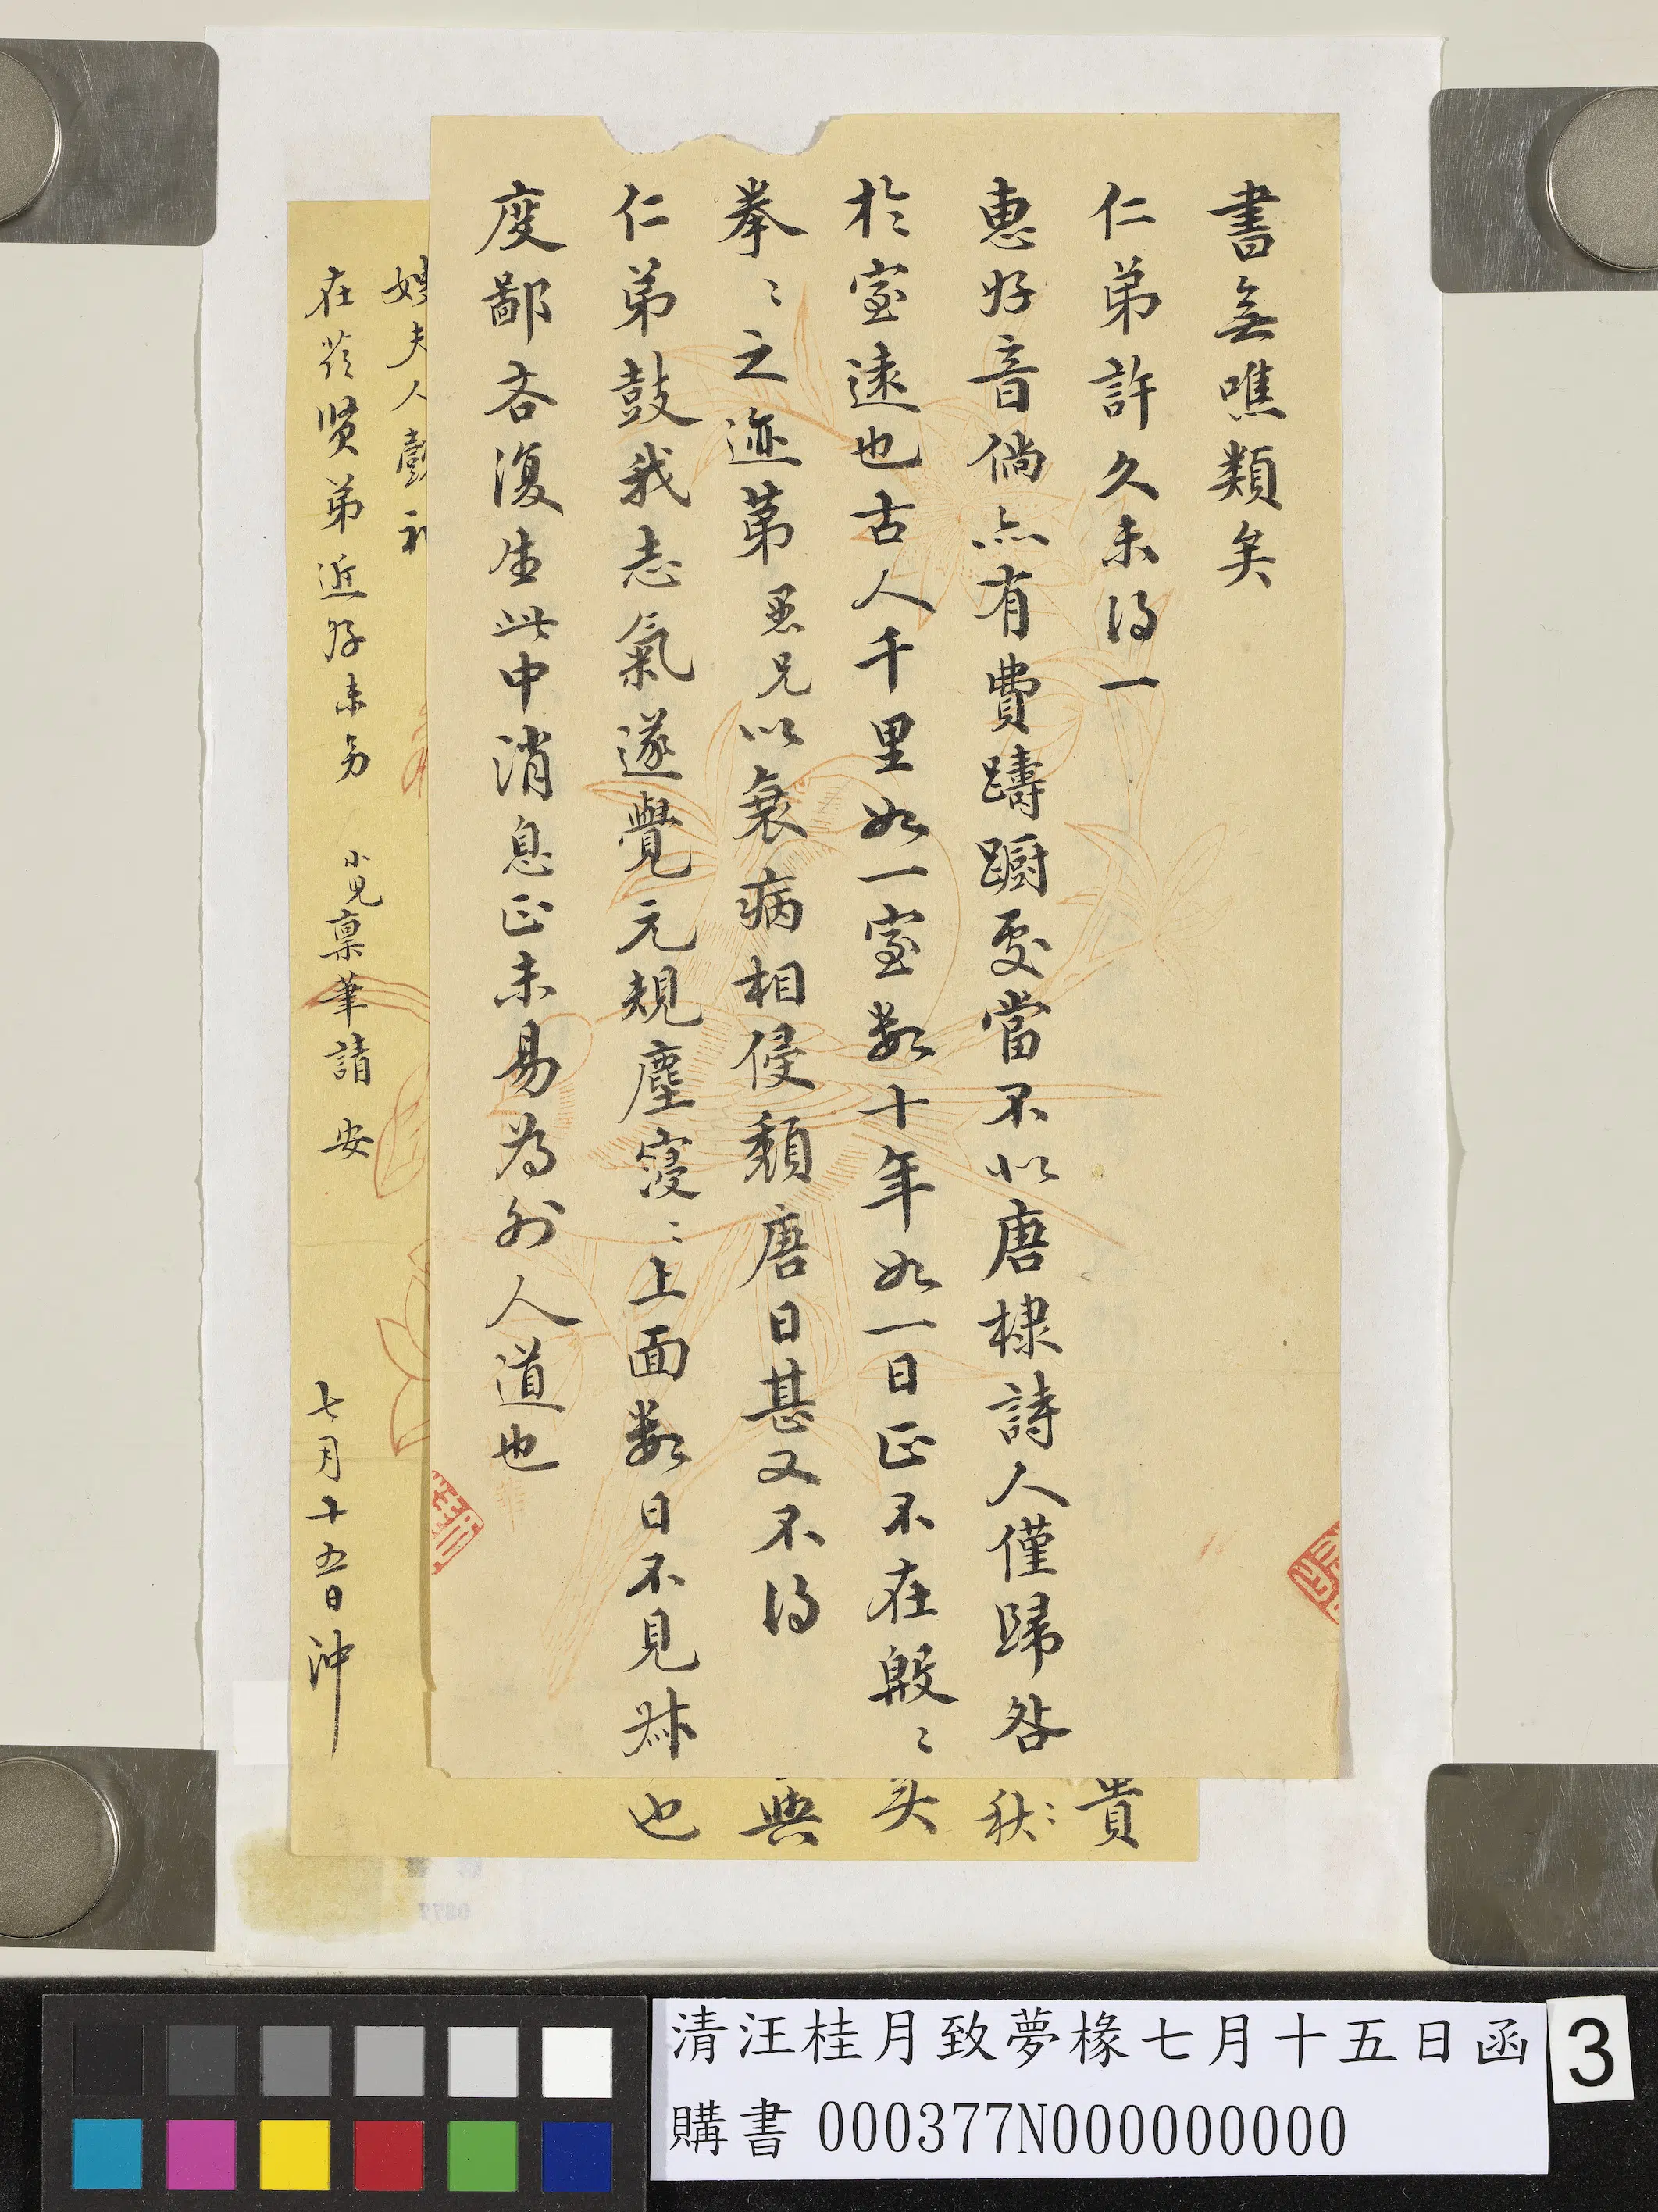 書無噍類矣
仁弟許久未得一
惠好音倘亦有費躊躕處當不以唐棣詩人僅歸咎
於室遠也古人千里如一室數十年如一日正不在殷〻
拳〻之迹第愚兄以衰病相侵頹唐日甚又不得
仁弟鼓我志氣遂覺元規塵寖〻上面數日不見叔
度鄙吝復生此中消息正未易為外人道也
貴
秋〻
夫人
在 賢弟近好未另 小兒稟筆請 安
七月十五日沖
清汪桂月致夢椽七月十五日函
購書 000377N000000000
3